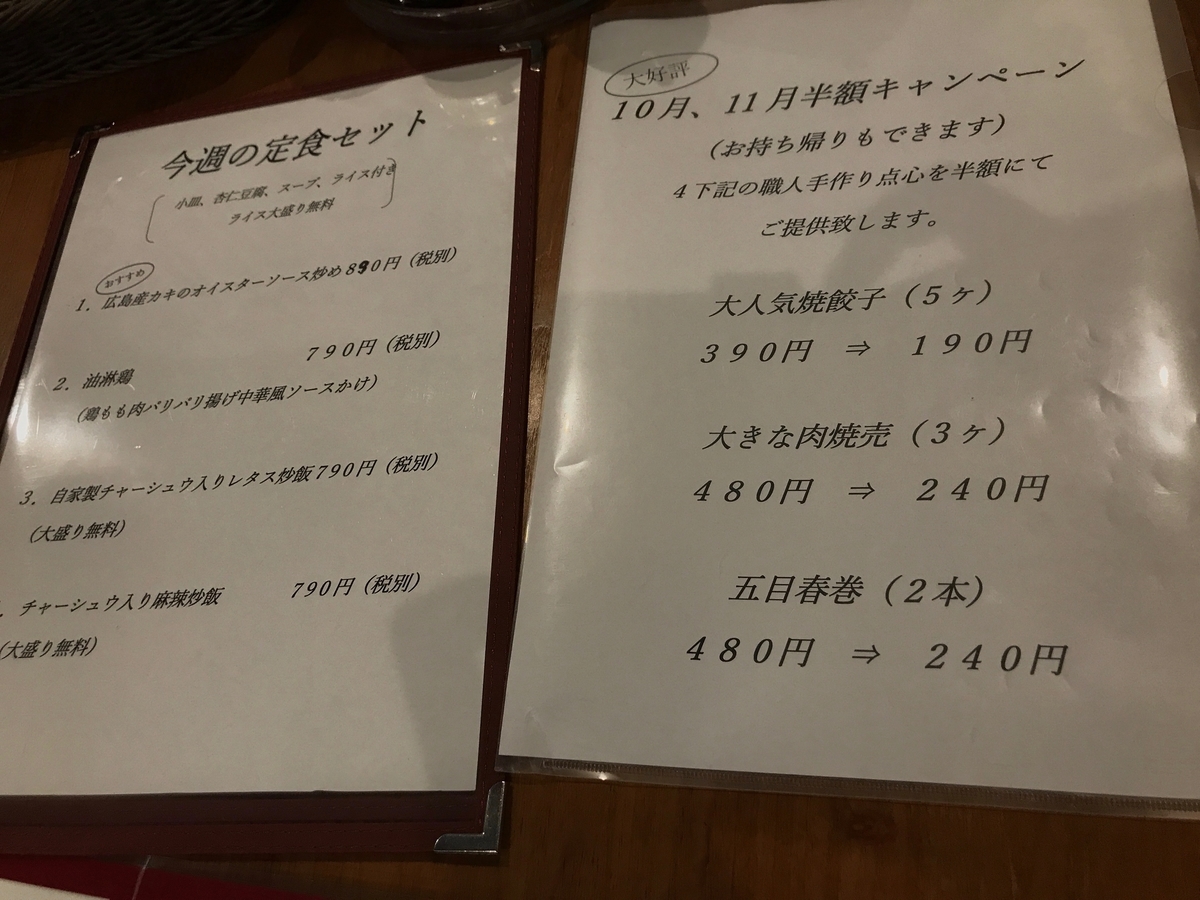 今週の定食セット
小皿、杏仁豆腐、スープ、ライス付き
ライス大盛り無料
おすすめ
1．広島産カキのオイスターソース炒め890円（税別）
790円（税別）
2．油淋鶏
（鶏もも肉パリパリ揚げ中華風ソースかけ）
3．自家製チャーシュウ入りレタス炒飯790円（税別）
（大盛り無料）
．チャーシュウ入り麻辣炒飯 790円（税別）
（大盛り無料）
大好評
10月、11月半額キャンペーン
（お持ち帰りもできます）
4下記の職人手作り点心を半額にて
ご提供致します。
大人気焼餃子（5ヶ）
390円 ⇒ 190円
大きな肉焼売（3ヶ）
480円 ⇒ 240円
五目春巻（2本）
480円 ⇒ 240円